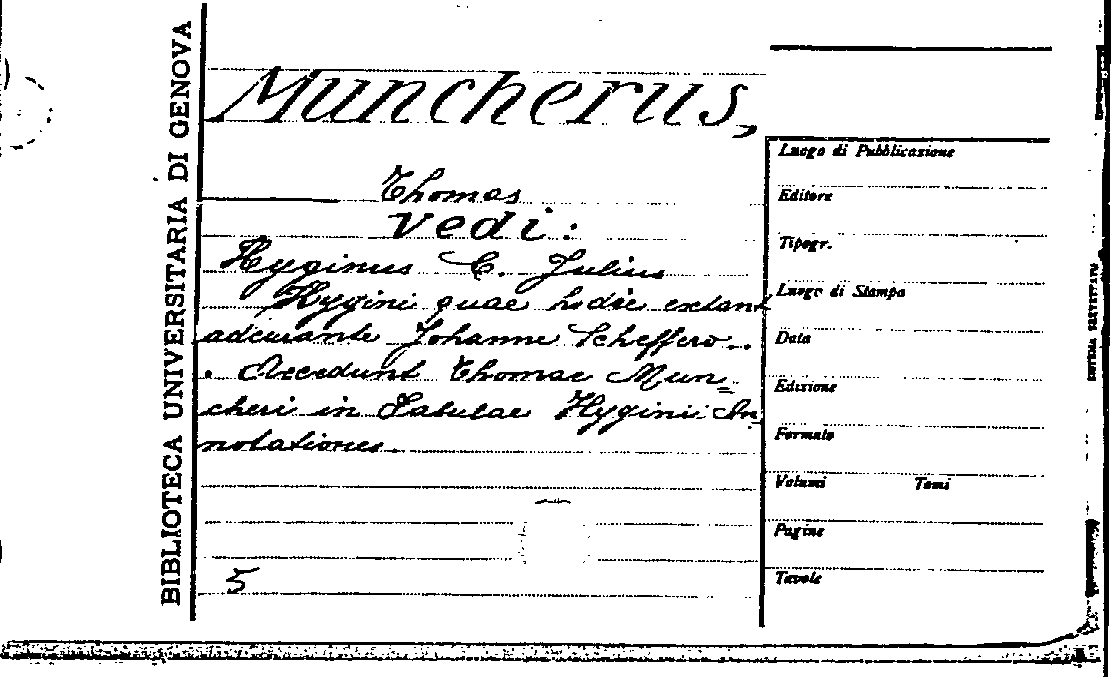 BIBLIOTECA UNIVERSITARIA DI GENOVA
Muncherus,
Thomas
vedi:
Hyginus C. Julius
Hygini quae hodie extant
adcurante Johanne Scheffero..
. Accedunt Thomae Mun=
cheri in Fabulae Hyginii An
notationes.
5
Luogo di Pubblicazione
Editore
Tipogr.
Luogo di Stampa
Data
Edizione
Formato
Volumi Tomi
Pagine
Tavole